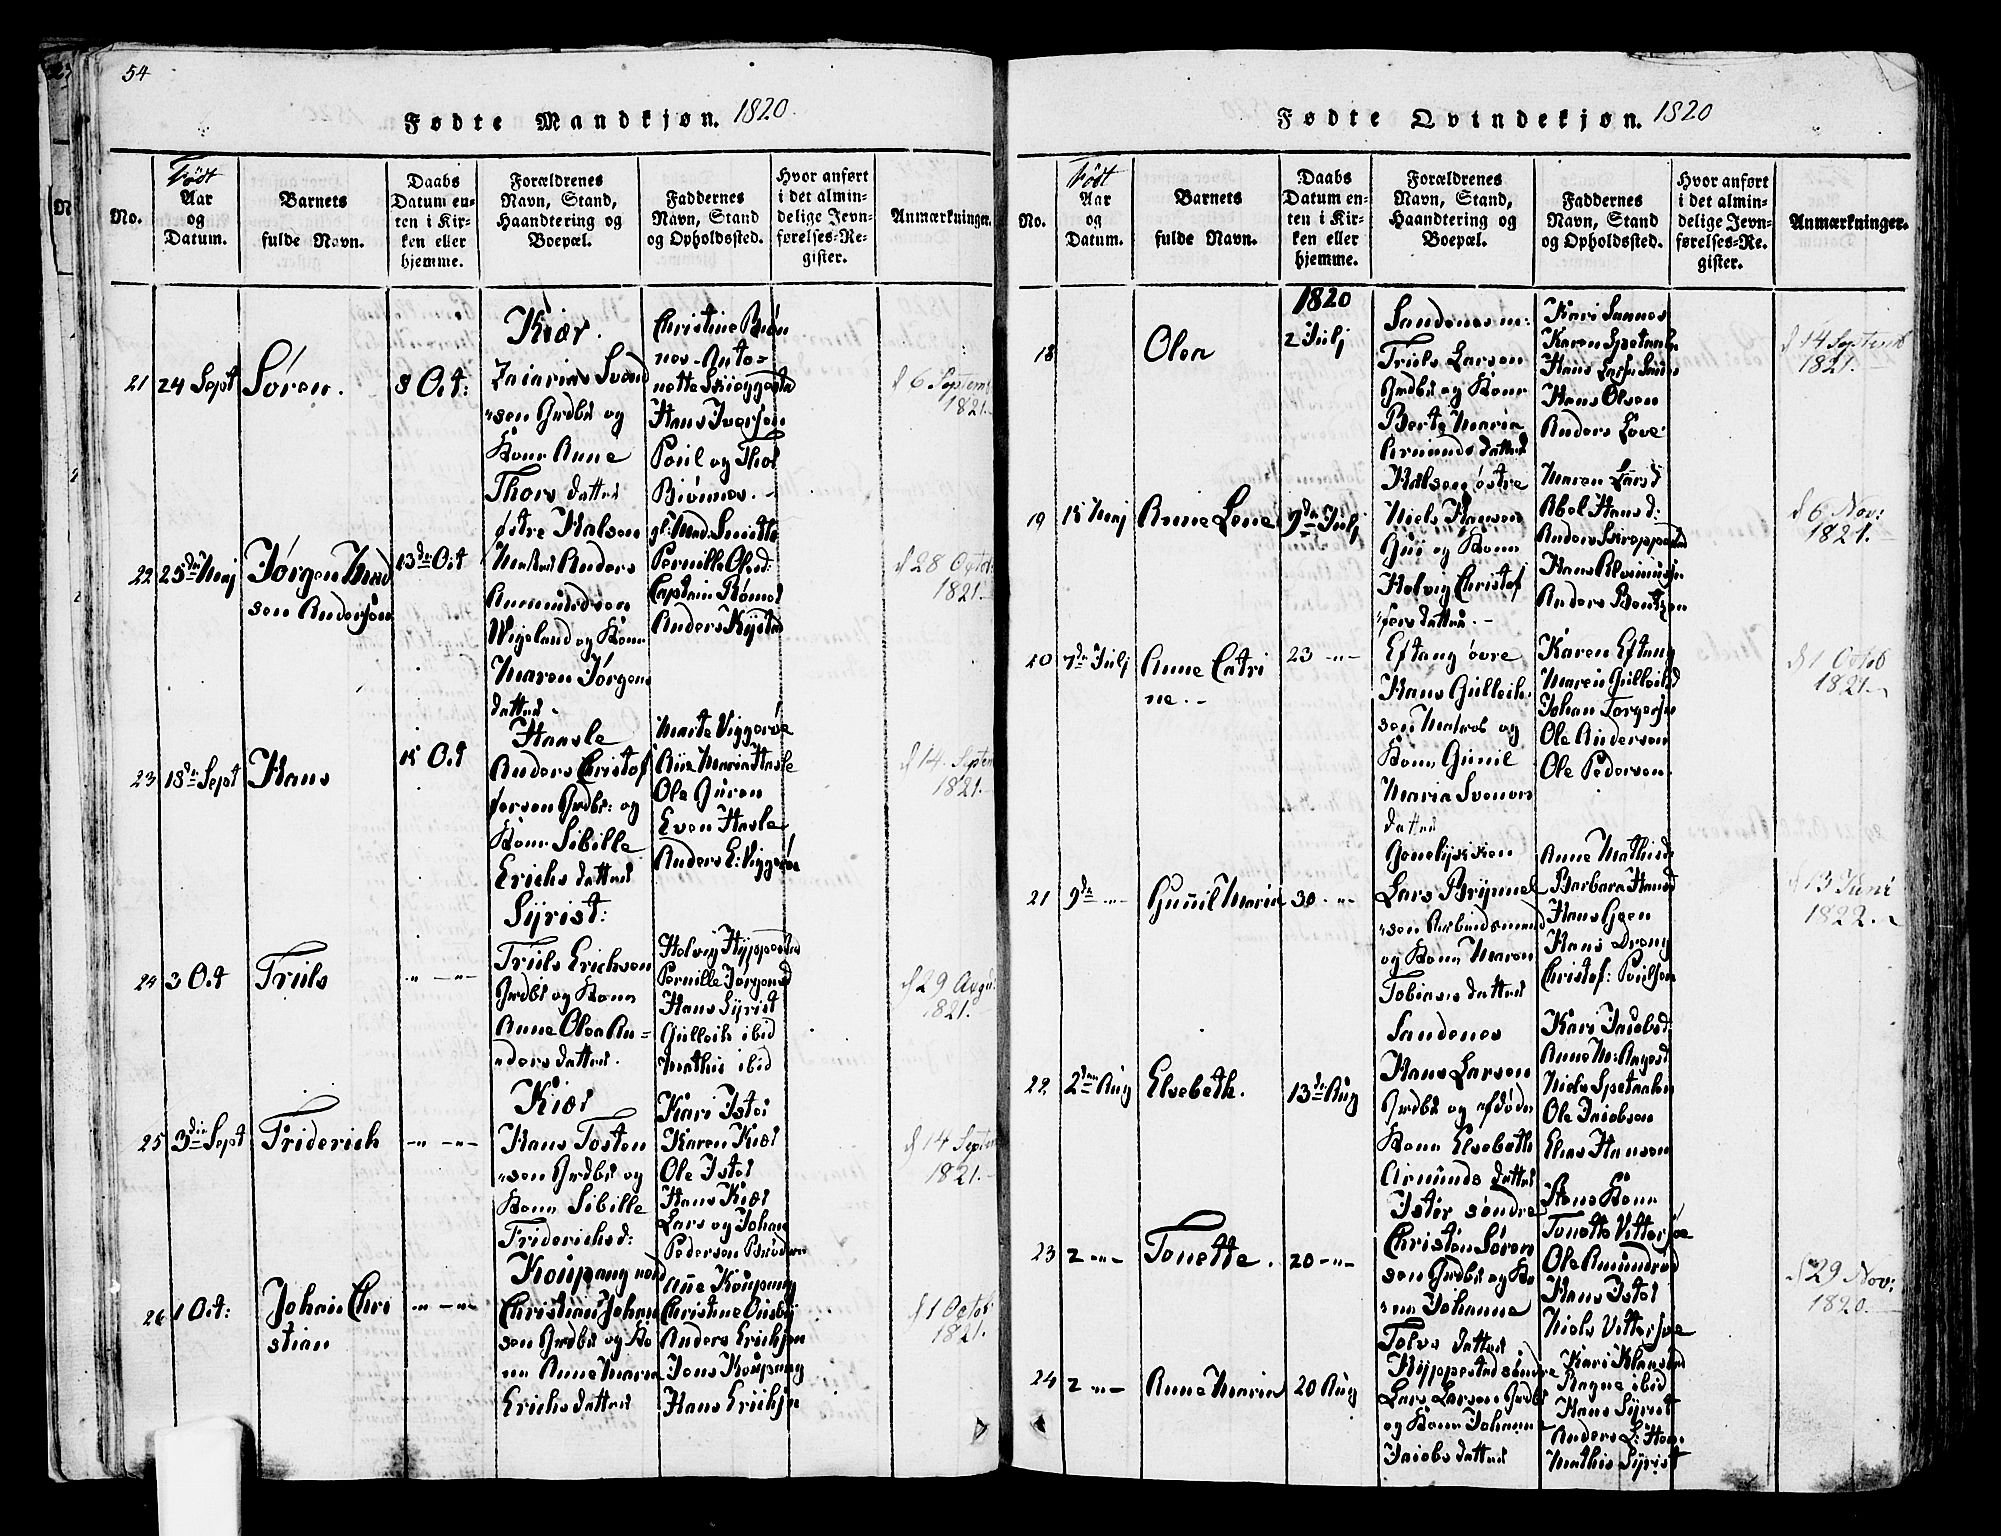 54
Fødte Mandkjøn. 1820
No.
Født
Aar
og
Datum.
Barnets
fulde Navn.
Daabs
Datum en-
ten i Kir-
ken eller
hjemme.
Forældrenes
Navn, Stand,
Haandtering og
Boepæl.
Faddernes
Navn, Stand
og Opholdssted.
Hvor anført
i det almin-
delige Jevn-
førelses-Re-
gister.
Anmærkninger.
21
24 Sept
Søren.
8 Oct:
Kiær.
Zaiarias Svend
sen Grdbr og
Kone Anne
Thors datter
Christine Biøn
nes Anto-
nette Skieggestad
Hans Iversen
Poul og Thor
Biønnes.
d 6 Septem
1821.
22
25de Maj
Jørgen Mad
sen Andersen
13de Oct
østre Halsen
Anders
Aamundsen
Wigeland og Kone
Maren Jørgens
datter
gl: Mad. Smitt
Pernille Olsd:
Captain Rømer
Anders Kystad
d 28 Octob:
1821.
23
18de Sept
Hans
15 Oct
Haasle
Anders Christof
fersen Grdbr: og
Kone Sibille
Erichs datter
Marte Viggersøe
Maria Hasle
Ole Guren
Even Hasle
Anders E: Viggersøe
d 14. Septem
1821.
24
3 Oct
Truls
" - "
Syrist:
Truls Erichsen
Grdbr og Kone
Anne Olea An-
ders datter.
Helvig Hyppestad
Pernille Jørgensd
Hans Syrist
Gulleik ibid
Mathis ibid
d 29 Augu:
1821.
25
3die Sept
Friderich
" - "
Kiær
Hans Tosten
sen Grdbr og
Kone Sibille
Friderichsd:
Kari Ister
Karen Kiær
Ole Ister
Hans Kiær
Lars og Johan
Pedersen
d 14 Septem
1821.
26
1 Oct:
Johan Chri
stian
" - "
Koupang nord
Christian Johan
sen Grdbr og Ko
ne Anne Maria
Erichs datter
Anne Koupang
Christine
Anders Erichsen
Jens Koupang
Hans Erichsen
d 1 Octob:
1821.
Fødte Qvindekjøn. 1820
No.
Født
Aar
og
Datum.
Barnets
fulde Navn.
Daabs
Datum en-
ten i Kir-
ken eller
hjemme.
Forældrenes
Navn, Stand,
Haandtering og
Boepæl.
Faddernes
Navn, Stand
og Opholdssted.
Hvor anført
i det almin-
delige Jevn-
førelses-Re-
gister.
Anmærkninger.
1820
18
Olea
2 Julj
Sandenes
Truls Larsen
Grdbr og Kone
Berte Maria
Armunds datter
Kari Sannes
Karen Spetaalen
Hans Larsen
Hans Olsen
Anders Love
d 14 Septemb
1821.
19
15 Maj
Anne Lene
9de Julj
Halsen østre
Niels Hansen
og Kone
Helvig Christof
fers datter.
Maren Larsd
Abel Hansd:
Anders Skreppestad
Hans
Anders Bentzen
d 6 Nov:
1821.
20
7de Julj
Anne Catri
ne.
23
Eftang øvre
Hans Gulleik
sen Matros og
Kone Gunil
Maria
datter
Karen Eftang
Maren Gulleiksd
Johan Torgersen
Ole Andersen
Ole Pedersen
d 1 Octob
1821.
21
9de
Gunil Maria
30
Lars Brynnel
sen Arbeidsmand
og Kone Maren
Tobias datter
Anne Mathisd
Barbara Hansd
Hans Goen
Hans
Christof: Poulsen
d 13 Juni
1822.
22
2den Aug
Elsebeth.
13de Aug
Sandenes
Hans Larsen
Grdbr og afdøde
Kone Elsebeth
Armunds datter
Kari Jacobsd:
Anne M: Aagesd
Niels Spetaalen
Ole Jacobsen
Elias Hansen
23
2
Tonette.
20
Ister søndre
Christen Søren
sen Grdbr og Ko
ne Johanne
datter
Hans Kone
Tonette Vittersøe
Ole Amundrød
Hans Ister
Niels Vittersøe
d 29 Nov:
1820.
24
2
Anne Maria
20 Aug
Hyppestad søndre
Lars Larsen Grdbr
og Kone Johanne
Jacobs datter
Kari Klavstad
Ragne ibid
Hans Syrist
Anders
Mathis Syrist